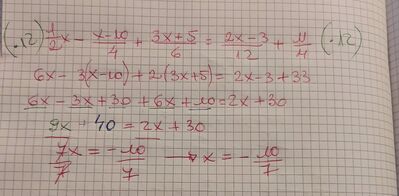 (·12) 1/2 x - (x-10)/4 + (3x+5)/6 = (2x-3)/12 + 11/4 (·12)
6x - 3(x-10) + 2(3x+5) = 2x-3+33
6x - 3x + 30 + 6x + 10 = 2x + 30
9x + 40 = 2x + 30
7x/7 = -10/7 → x = -10/7